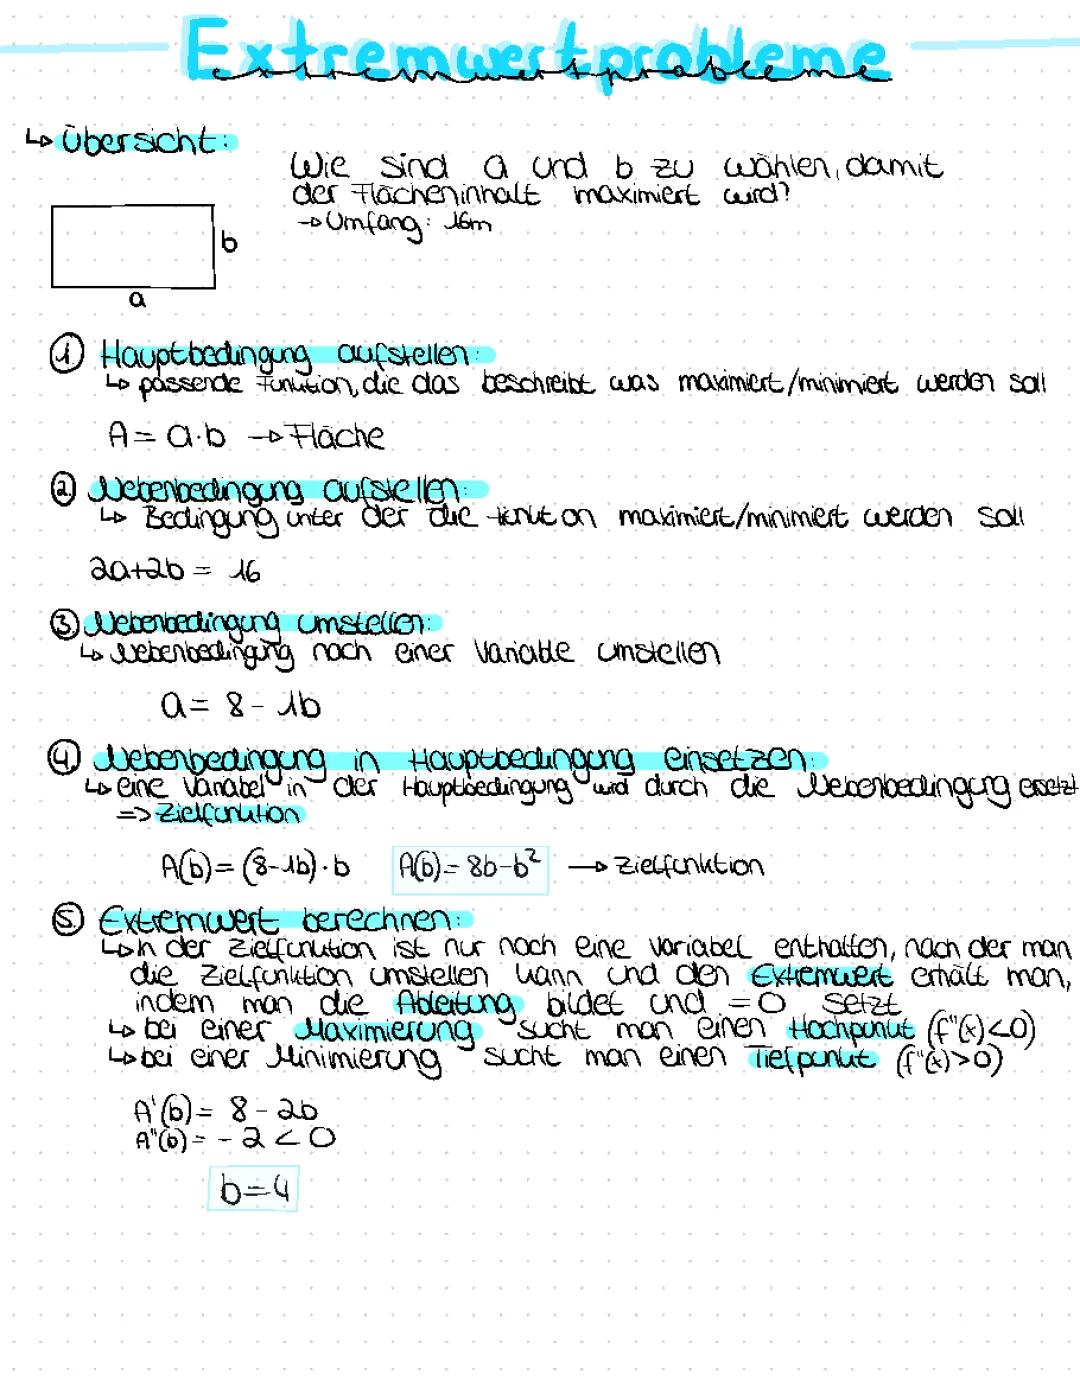 Extremwertprobleme
extremwertprobleme
↳ Übersicht:
Wie sind a und b zu wählen, damit
der Flächeninhalt maximiert wird?
→ Umfang: 16m
b
a
① Hauptbedingung aufstellen:
↳ passende Funktion, die das beschreibt was maximiert/minimiert werden soll
A = a·b → Fläche
② Nebenbedingung aufstellen:
↳ Bedingung unter der die Funktion maximiert/minimiert werden soll
2a+2b = 16
③ Nebenbedingung umstellen:
↳ Nebenbedingung nach einer Variable umstellen
a = 8 - 1b
④ Nebenbedingung in Hauptbedingung einsetzen:
↳ eine Variabel in der Hauptbedingung wird durch die Nebenbedingung ersetzt
=> Zielfunktion
A(b) = (8-1b)·b A(b) = 8b-b² → Zielfunktion
⑤ Extremwert berechnen:
↳ In der Zielfunktion ist nur noch eine Variabel enthalten, nach der man
die Zielfunktion umstellen kann und den Extremwert erhält man,
indem man die Ableitung bildet und = 0 setzt
↳ bei einer Maximierung sucht man einen Hochpunkt (f"(x)<0)
↳ bei einer Minimierung sucht man einen Tiefpunkt (f"(x)>0)
A'(b) = 8 - 2b
A"(b) = - 2 < 0
b=4